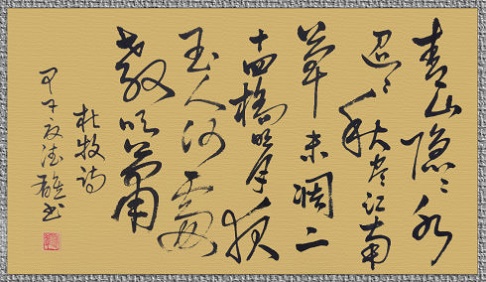 青山隐〻水
迢〻秋尽江南
草未凋二
十四橋明月夜
玉人何處
教吹箫
杜牧诗
甲午夏德书